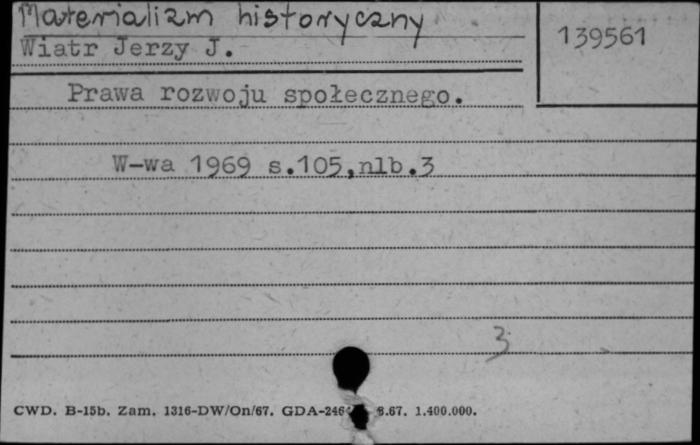 Materializm historyczny
139561
Wiatr Jerzy J.
Prawa rozwoju społecznego.
W-wa 1969 s.105,nlb.3
3
CWD. B-15b. Zam. 1316-DW/On/67. GDA-246 8.67. 1.400.000.